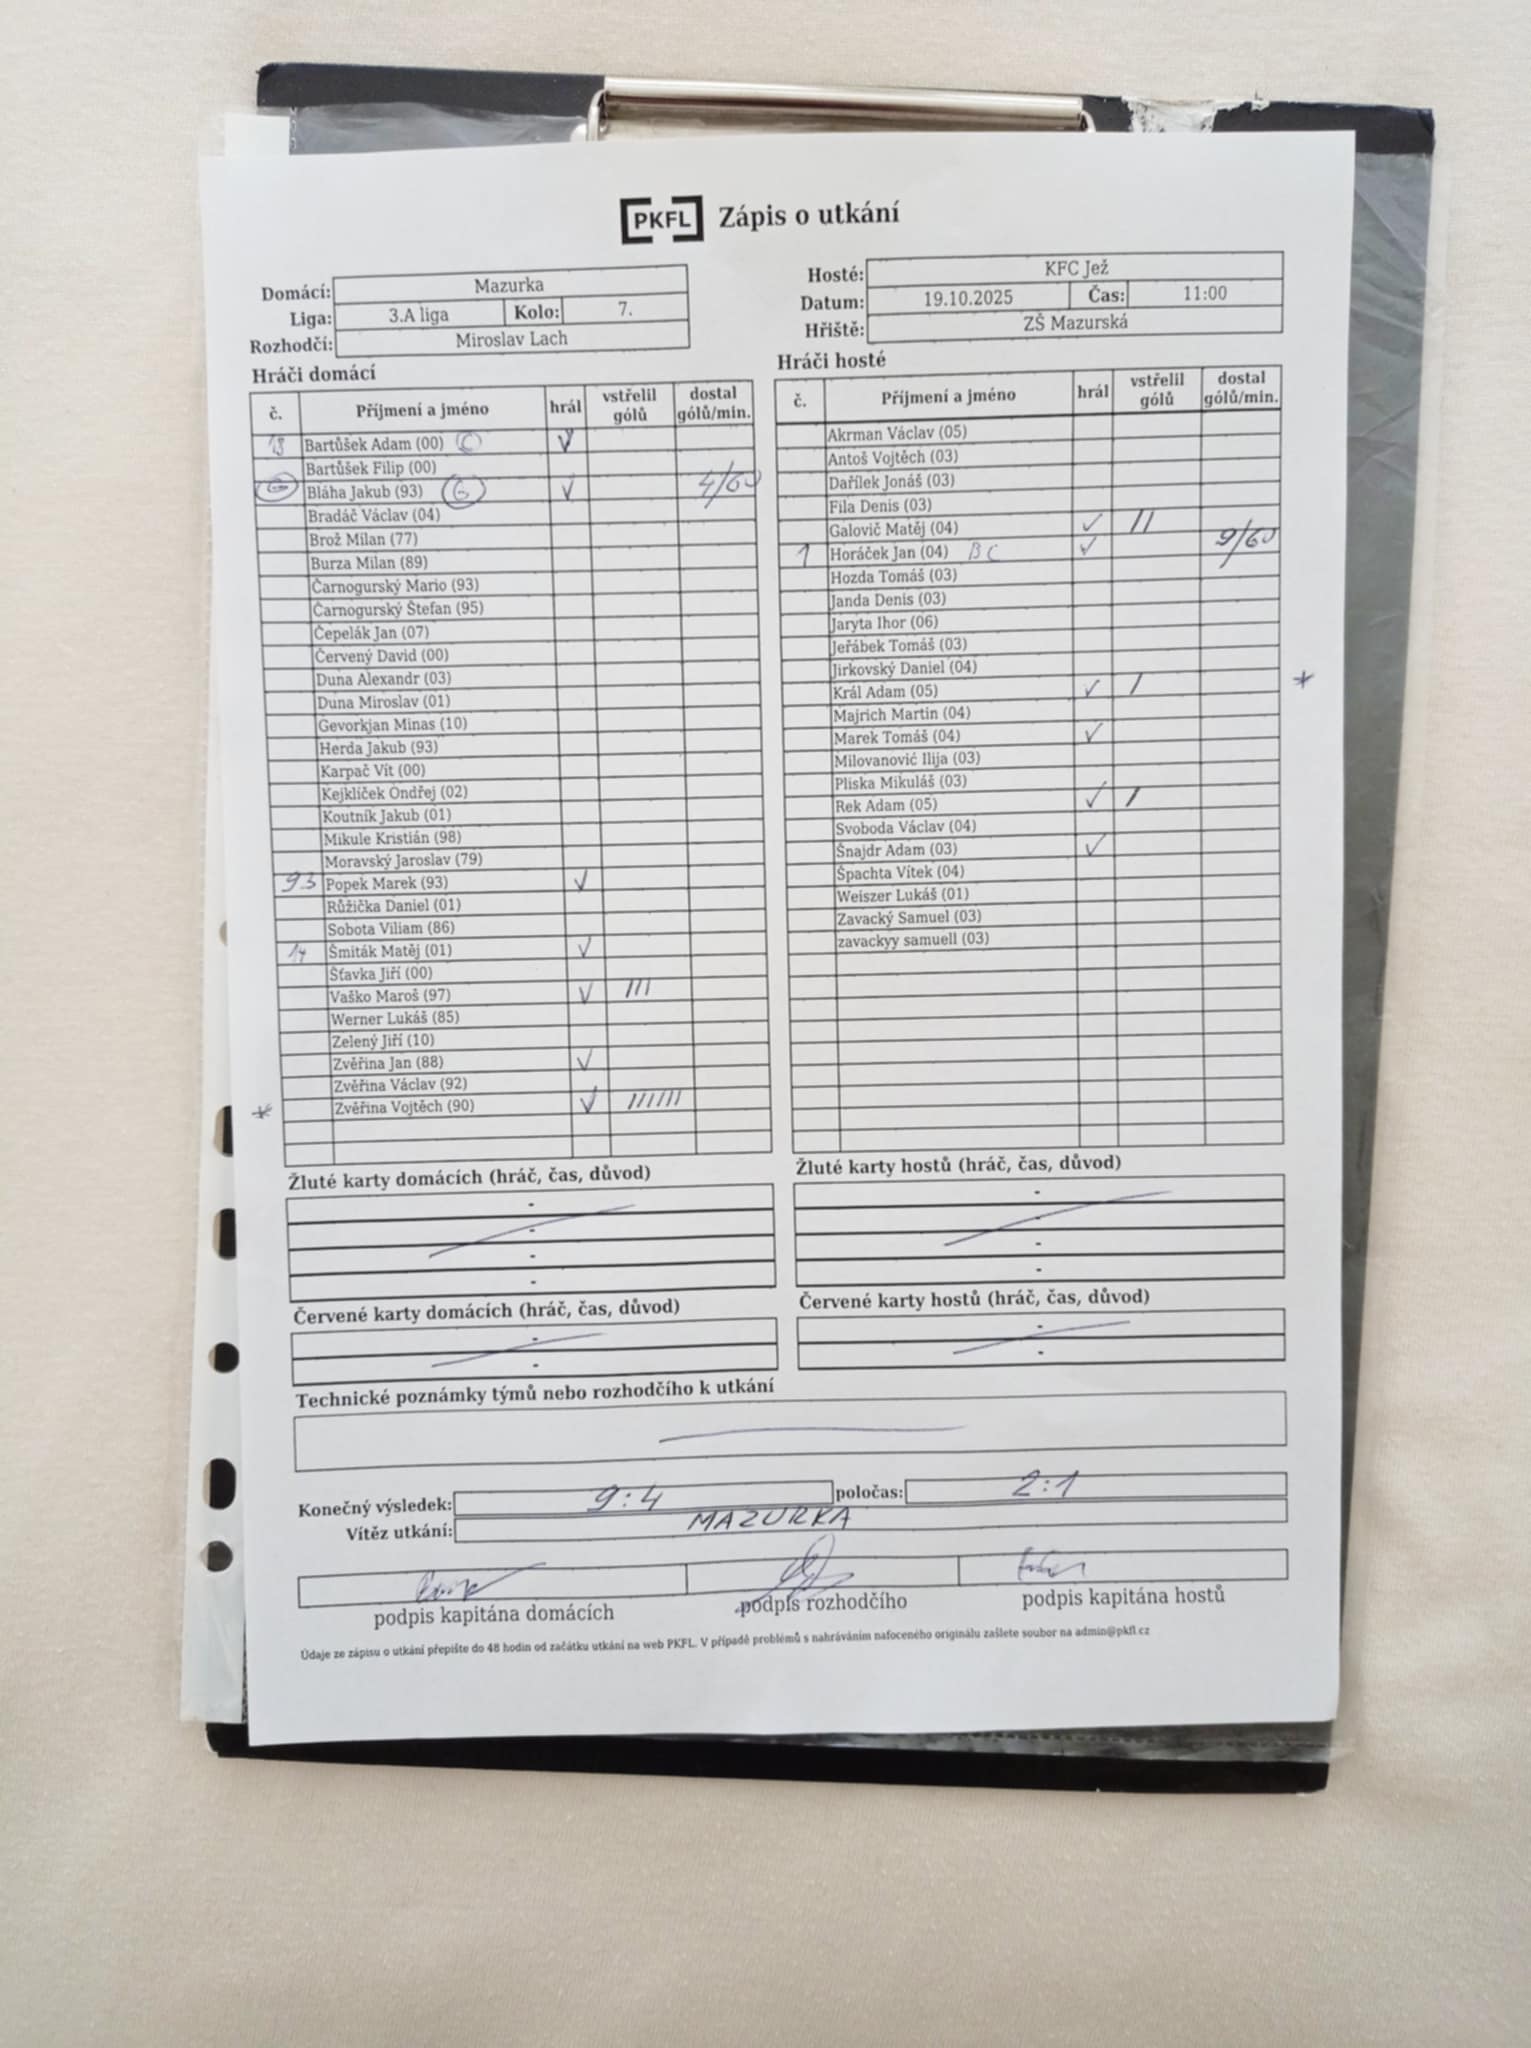 PKFL Zápis o utkání
Domácí: Mazurka
Liga: 3.A liga Kolo: 7.
Rozhodčí: Miroslav Lach
Hosté: KFC Jež
Datum: 19.10.2025 Čas: 11:00
Hřiště: ZŠ Mazurská
Hráči domácí
č. Příjmení a jméno hrál vstřelil gólů dostal gólů/min.
Bartůšek Adam (00) C V
Bartůšek Filip (00)
G Bláha Jakub (93) G V 4/60
Bradáč Václav (04)
Brož Milan (77)
Burza Milan (89)
Čarnogurský Mario (93)
Čarnogurský Štefan (95)
Čepelák Jan (07)
Červený David (00)
Duna Alexandr (03)
Duna Miroslav (01)
Gevorkjan Minas (10)
Herda Jakub (93)
Karpač Vít (00)
Kejklíček Ondřej (02)
Koutník Jakub (01)
Mikule Kristián (98)
Moravský Jaroslav (79)
93 Popek Marek (93) V
Růžička Daniel (01)
Sobota Viliam (86)
14 Šmiták Matěj (01) V
Šťavka Jiří (00)
Vaško Maroš (97) V III
Werner Lukáš (85)
Zelený Jiří (10)
Zvěřina Jan (88) V
Zvěřina Václav (92)
* Zvěřina Vojtěch (90) V IIIIII
Hráči hosté
č. Příjmení a jméno hrál vstřelil gólů dostal gólů/min.
Akrman Václav (05)
Antoš Vojtěch (03)
Dařílek Jonáš (03)
Fila Denis (03)
Galovič Matěj (04) ✓ II
1 Horáček Jan (04) BC ✓ 9/60
Hozda Tomáš (03)
Janda Denis (03)
Jaryta Ihor (06)
Jeřábek Tomáš (03)
Jirkovský Daniel (04)
Král Adam (05) ✓ I *
Majrich Martin (04)
Marek Tomáš (04) ✓
Milovanović Ilija (03)
Pliska Mikuláš (03)
Rek Adam (05) ✓ I
Svoboda Václav (04)
Šnajdr Adam (03) ✓
Špachta Vítek (04)
Weiszer Lukáš (01)
Zavacký Samuel (03)
zavackyy samuell (03)
Žluté karty domácích (hráč, čas, důvod)
-
-
-
-
Žluté karty hostů (hráč, čas, důvod)
-
-
-
-
Červené karty domácích (hráč, čas, důvod)
-
-
Červené karty hostů (hráč, čas, důvod)
-
-
Technické poznámky týmů nebo rozhodčího k utkání
Konečný výsledek: 9:4 poločas: 2:1
Vítěz utkání: MAZURKA
podpis kapitána domácích podpis rozhodčího podpis kapitána hostů
Údaje ze zápisu o utkání přepište do 48 hodin od začátku utkání na web PKFL. V případě problémů s nahráváním nafoceného originálu zašlete soubor na admin@pkfl.cz